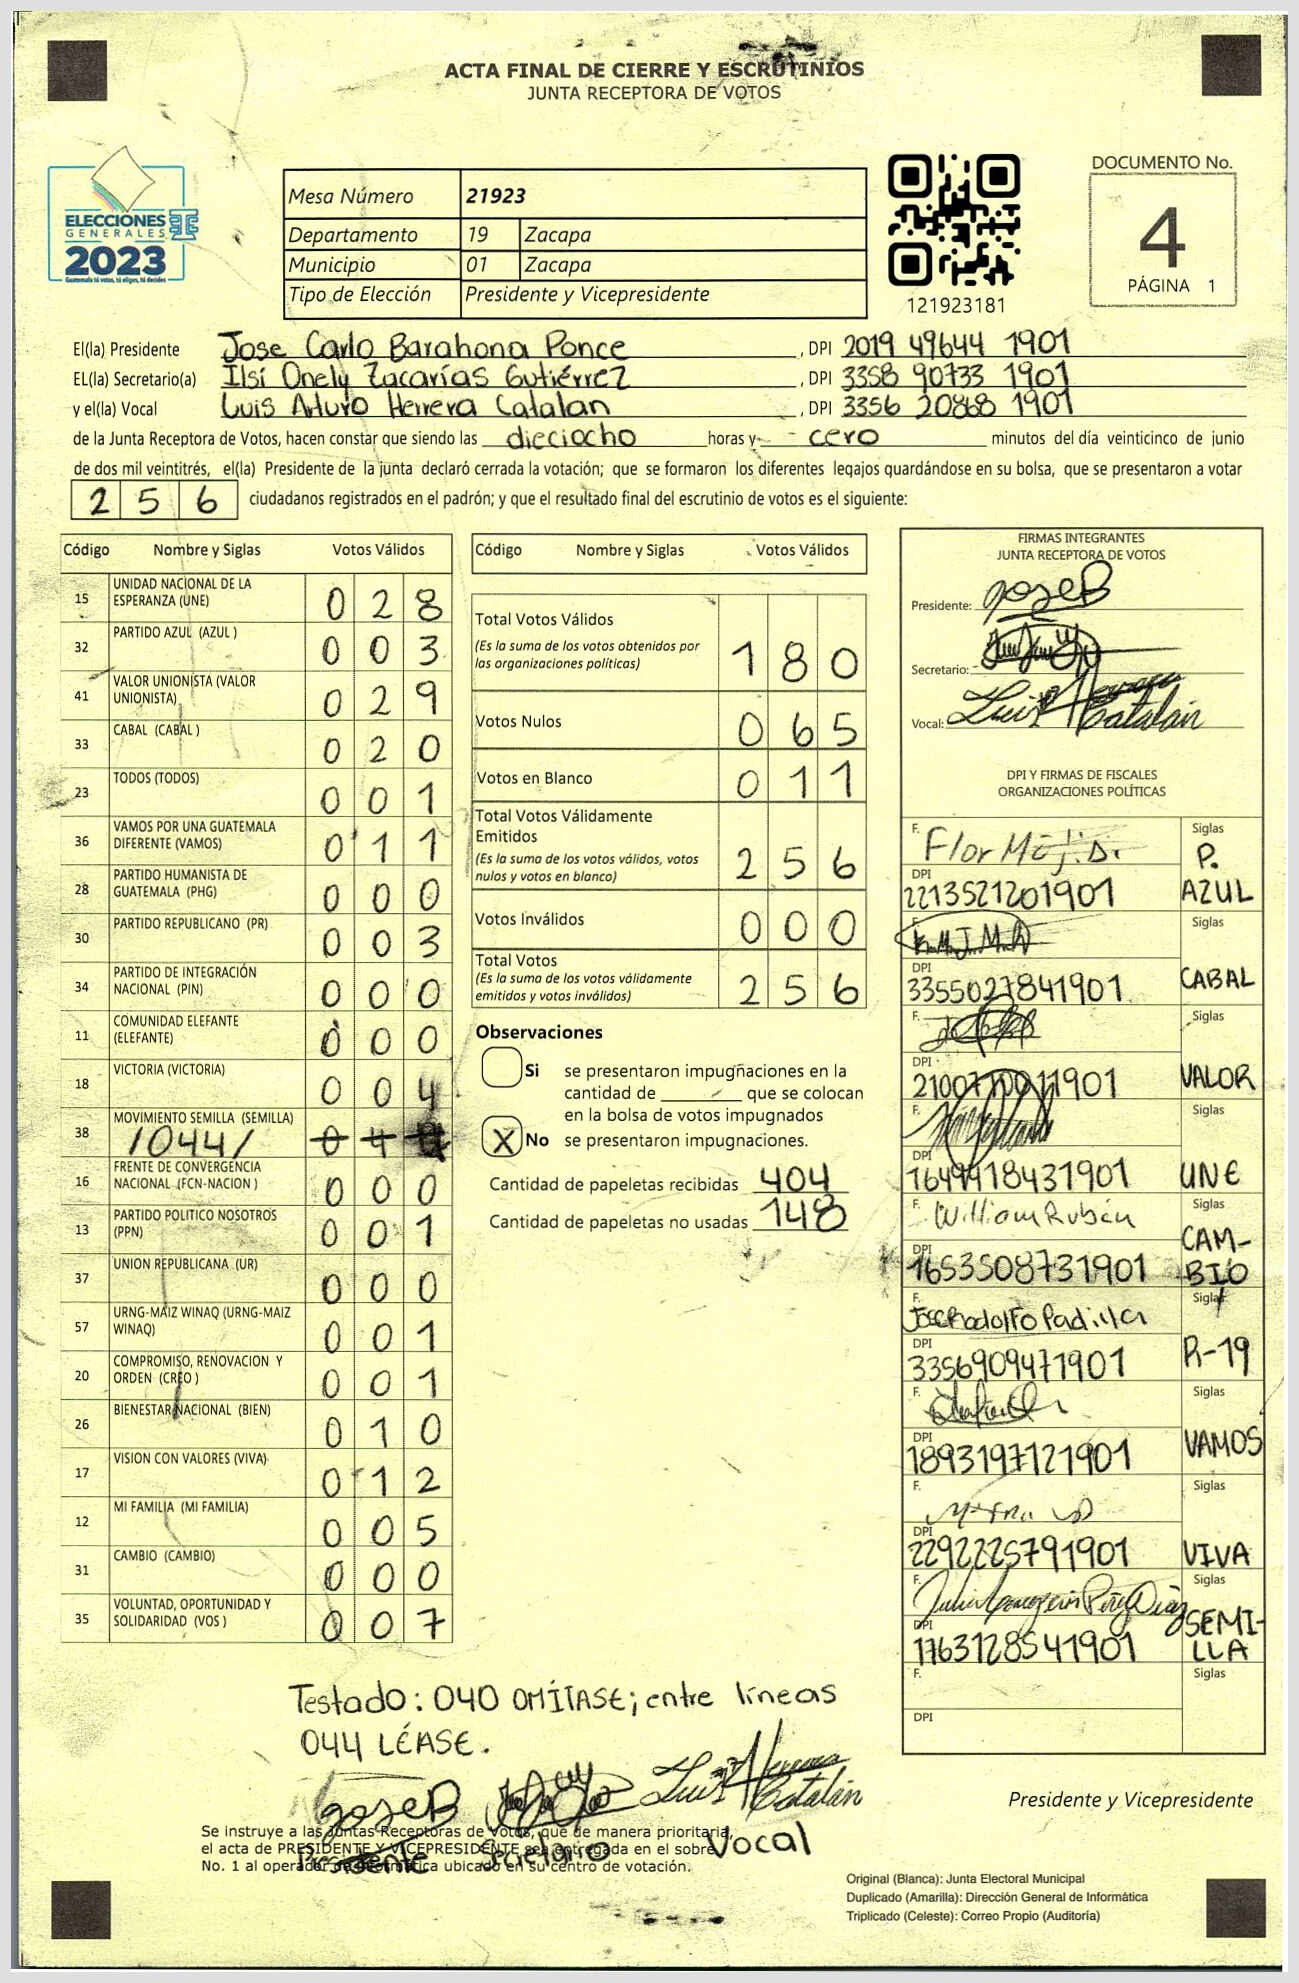 ACTA FINAL DE CIERRE Y ESCRUTINIOS
JUNTA RECEPTORA DE VOTOS
ELECCIONES
GENERALES
2023
Guatemala tú votas, tú eliges, tú decides
Mesa Número 21923
Departamento 19 Zacapa
Municipio 01 Zacapa
Tipo de Elección Presidente y Vicepresidente
121923181
DOCUMENTO No.
4
PÁGINA 1
El(la) Presidente Jose Carlo Barahona Ponce , DPI 2019 49644 1901
EL(la) Secretario(a) Ilsi Onely Zacarías Gutiérrez , DPI 3358 90733 1901
y el(la) Vocal Luis Arturo Herrera Catalan , DPI 3356 20868 1901
de la Junta Receptora de Votos, hacen constar que siendo las dieciocho horas y - cero minutos del día veinticinco de junio
de dos mil veintitrés, el(la) Presidente de la junta declaró cerrada la votación; que se formaron los diferentes legajos guardándose en su bolsa, que se presentaron a votar
2 5 6 ciudadanos registrados en el padrón; y que el resultado final del escrutinio de votos es el siguiente:
Código Nombre y Siglas Votos Válidos
15 UNIDAD NACIONAL DE LA
ESPERANZA (UNE) 0 2 8
32 PARTIDO AZUL (AZUL ) 0 0 3
41 VALOR UNIONISTA (VALOR
UNIONISTA) 0 2 9
33 CABAL (CABAL ) 0 2 0
23 TODOS (TODOS) 0 0 1
36 VAMOS POR UNA GUATEMALA
DIFERENTE (VAMOS) 0 1 1
28 PARTIDO HUMANISTA DE
GUATEMALA (PHG) 0 0 0
30 PARTIDO REPUBLICANO (PR) 0 0 3
34 PARTIDO DE INTEGRACIÓN
NACIONAL (PIN) 0 0 0
11 COMUNIDAD ELEFANTE
(ELEFANTE) 0 0 0
18 VICTORIA (VICTORIA) 0 0 4
38 MOVIMIENTO SEMILLA (SEMILLA)
/044/ 0 4
16 FRENTE DE CONVERGENCIA
NACIONAL (FCN-NACION ) 0 0 0
13 PARTIDO POLITICO NOSOTROS
(PPN) 0 0 1
37 UNION REPUBLICANA (UR) 0 0 0
57 URNG-MAIZ WINAQ (URNG-MAIZ
WINAQ) 0 0 1
20 COMPROMISO, RENOVACION Y
ORDEN (CREO ) 0 0 1
26 BIENESTAR NACIONAL (BIEN) 0 1 0
17 VISION CON VALORES (VIVA) 0 1 2
12 MI FAMILIA (MI FAMILIA) 0 0 5
31 CAMBIO (CAMBIO) 0 0 0
35 VOLUNTAD, OPORTUNIDAD Y
SOLIDARIDAD (VOS ) 0 0 7
Código Nombre y Siglas Votos Válidos
Total Votos Válidos
(Es la suma de los votos obtenidos por
las organizaciones políticas) 1 8 0
Votos Nulos 0 6 5
Votos en Blanco 0 1 1
Total Votos Válidamente
Emitidos
(Es la suma de los votos válidos, votos
nulos y votos en blanco) 2 5 6
Votos Inválidos 0 0 0
Total Votos
(Es la suma de los votos válidamente
emitidos y votos inválidos) 2 5 6
Observaciones
Si se presentaron impugnaciones en la
cantidad de que se colocan
en la bolsa de votos impugnados
X No se presentaron impugnaciones.
Cantidad de papeletas recibidas 404
Cantidad de papeletas no usadas 148
FIRMAS INTEGRANTES
JUNTA RECEPTORA DE VOTOS
Presidente: JoseB
Secretario:
Vocal: Luis Herrera Catalán
DPI Y FIRMAS DE FISCALES
ORGANIZACIONES POLÍTICAS
F. Flor Siglas
P. AZUL
DPI
2213521201901
F. Siglas
CABAL
DPI
3355027841901
F. Siglas
VALOR
DPI
F. Siglas
UNE
DPI
F. William Rubén Siglas
CAM-
BIO
DPI
1653508731901
F. Jose Rodolfo Padilla Siglas
R-19
DPI
3356909471901
F. Siglas
VAMOS
DPI
1893197121901
F. Siglas
VIVA
DPI
2292225791901
F. Siglas
SEMI-
LLA
DPI
1763128541901
F. Siglas
DPI
Testado: 040 OMÍTASE; entre líneas
044 LÉASE.
JoseB Luis Herrera Catalán
Presidente Secretario Vocal
Se instruye a las Juntas Receptoras de Votos, que de manera prioritaria,
el acta de PRESIDENTE Y VICEPRESIDENTE sea entregada en el sobre
No. 1 al operador de informática ubicado en su centro de votación.
Presidente y Vicepresidente
Original (Blanca): Junta Electoral Municipal
Duplicado (Amarilla): Dirección General de Informática
Triplicado (Celeste): Correo Propio (Auditoría)